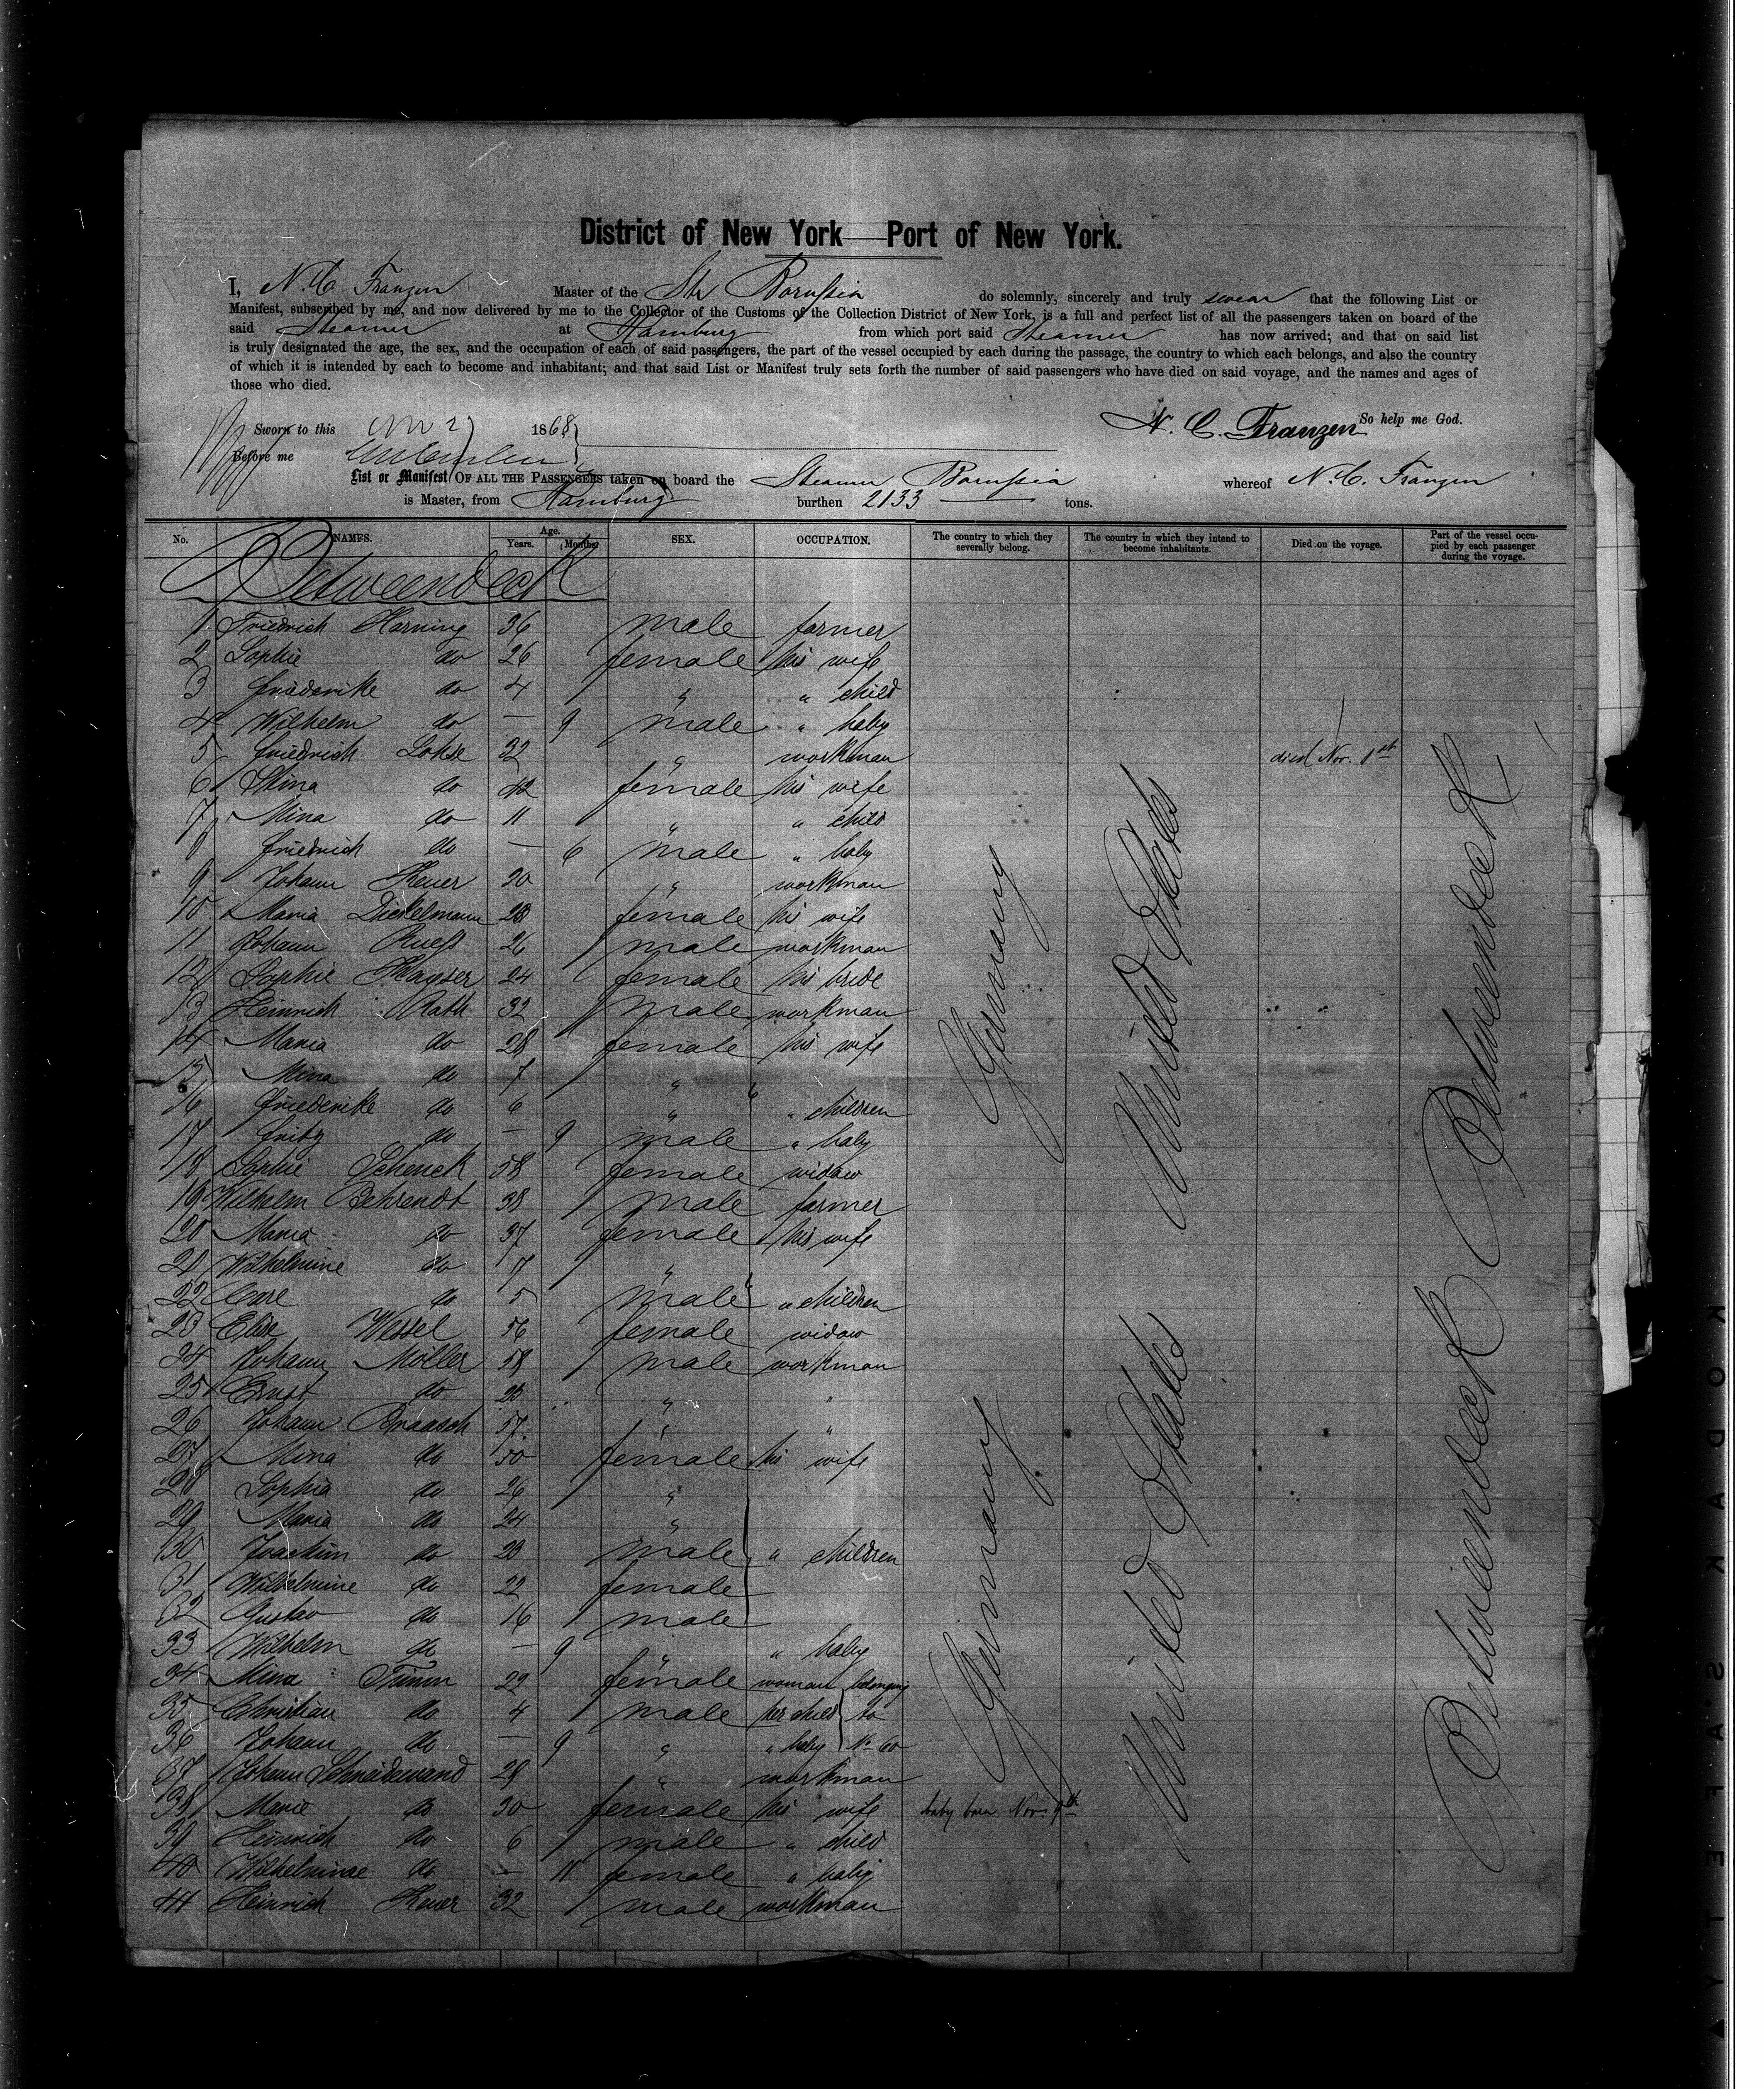 District of New York—Port of New York.
I, N. C. Franzen Master of the Str Borussia do solemnly, sincerely and truly swear that the following List or
Manifest, subscribed by me, and now delivered by me to the Collector of the Customs of the Collection District of New York, is a full and perfect list of all the passengers taken on board of the
said Steamer at Hamburg from which port said Steamer has now arrived; and that on said list
is truly designated the age, the sex, and the occupation of each of said passengers, the part of the vessel occupied by each during the passage, the country to which each belongs, and also the country
of which it is intended by each to become and inhabitant; and that said List or Manifest truly sets forth the number of said passengers who have died on said voyage, and the names and ages of
those who died.
So help me God.
N. C. Franzen
Sworn to this Nov 1868
Before me
List or Manifest OF ALL THE PASSENGERS taken on board the Steamer Borussia whereof N. C. Franzen
is Master, from Hamburg burthen 2133 tons.
No. NAMES. Age. Years. Months. SEX. OCCUPATION. The country to which they severally belong. The country in which they intend to become inhabitants. Died on the voyage. Part of the vessel occupied by each passenger during the voyage.
Betweendeck
1 Friedrich Horning 36 male farmer
2 Sophie do 26 female his wife
3 Friederike do 4 " " child
4 Wilhelm do — 9 male " baby
5 Friedrich Lohse 32 " workman died Nov. 1st
6 Stina do 42 female his wife
7 Mina do 11 " " child
8 Friedrich do — 6 male " baby
9 Johann Heuer 20 " workman
10 Maria Dickelmann 23 female his wife
11 Johann Ruess 26 male workman
12 Sophie Kayser 24 female his bride
13 Heinrich Rath 32 male workman
14 Maria do 28 female his wife
15 Mina do 7 "
16 Friederike do 6 " " children
17 Fritz do — 9 male " baby
18 Sophie Schenck 58 female widow
19 Wilhelm Behrendt 38 male farmer
20 Maria do 37 female his wife
21 Wilhelmine do 17 "
22 Carl do 5 male " children
23 Elise Wessel 56 female widow
24 Johann Möller 58 male workman
25 Ernst do 23 " "
26 Johann Braasch 57 " "
27 Mina do 50 female his wife
28 Sophia do 26 "
29 Maria do 24 "
30 Joachim do 23 male " children
31 Wilhelmine do 22 female
32 Gustav do 16 male
33 Wilhelm do — 9 " " baby
34 Mina Timm 22 female woman belonging
35 Christian do 4 male her child to
36 Johann do — 9 " " baby No 60
37 Johann Schneidewand 28 " workman
38 Marie do 30 female his wife baby born Nov. 9th
39 Heinrich do 6 male " child
40 Wilhelmine do — 11 female " baby
41 Heinrich Heuer 32 male workman
Germany
United States
Betweendeck
Germany
United States
Betweendeck
KODAK SAFETY